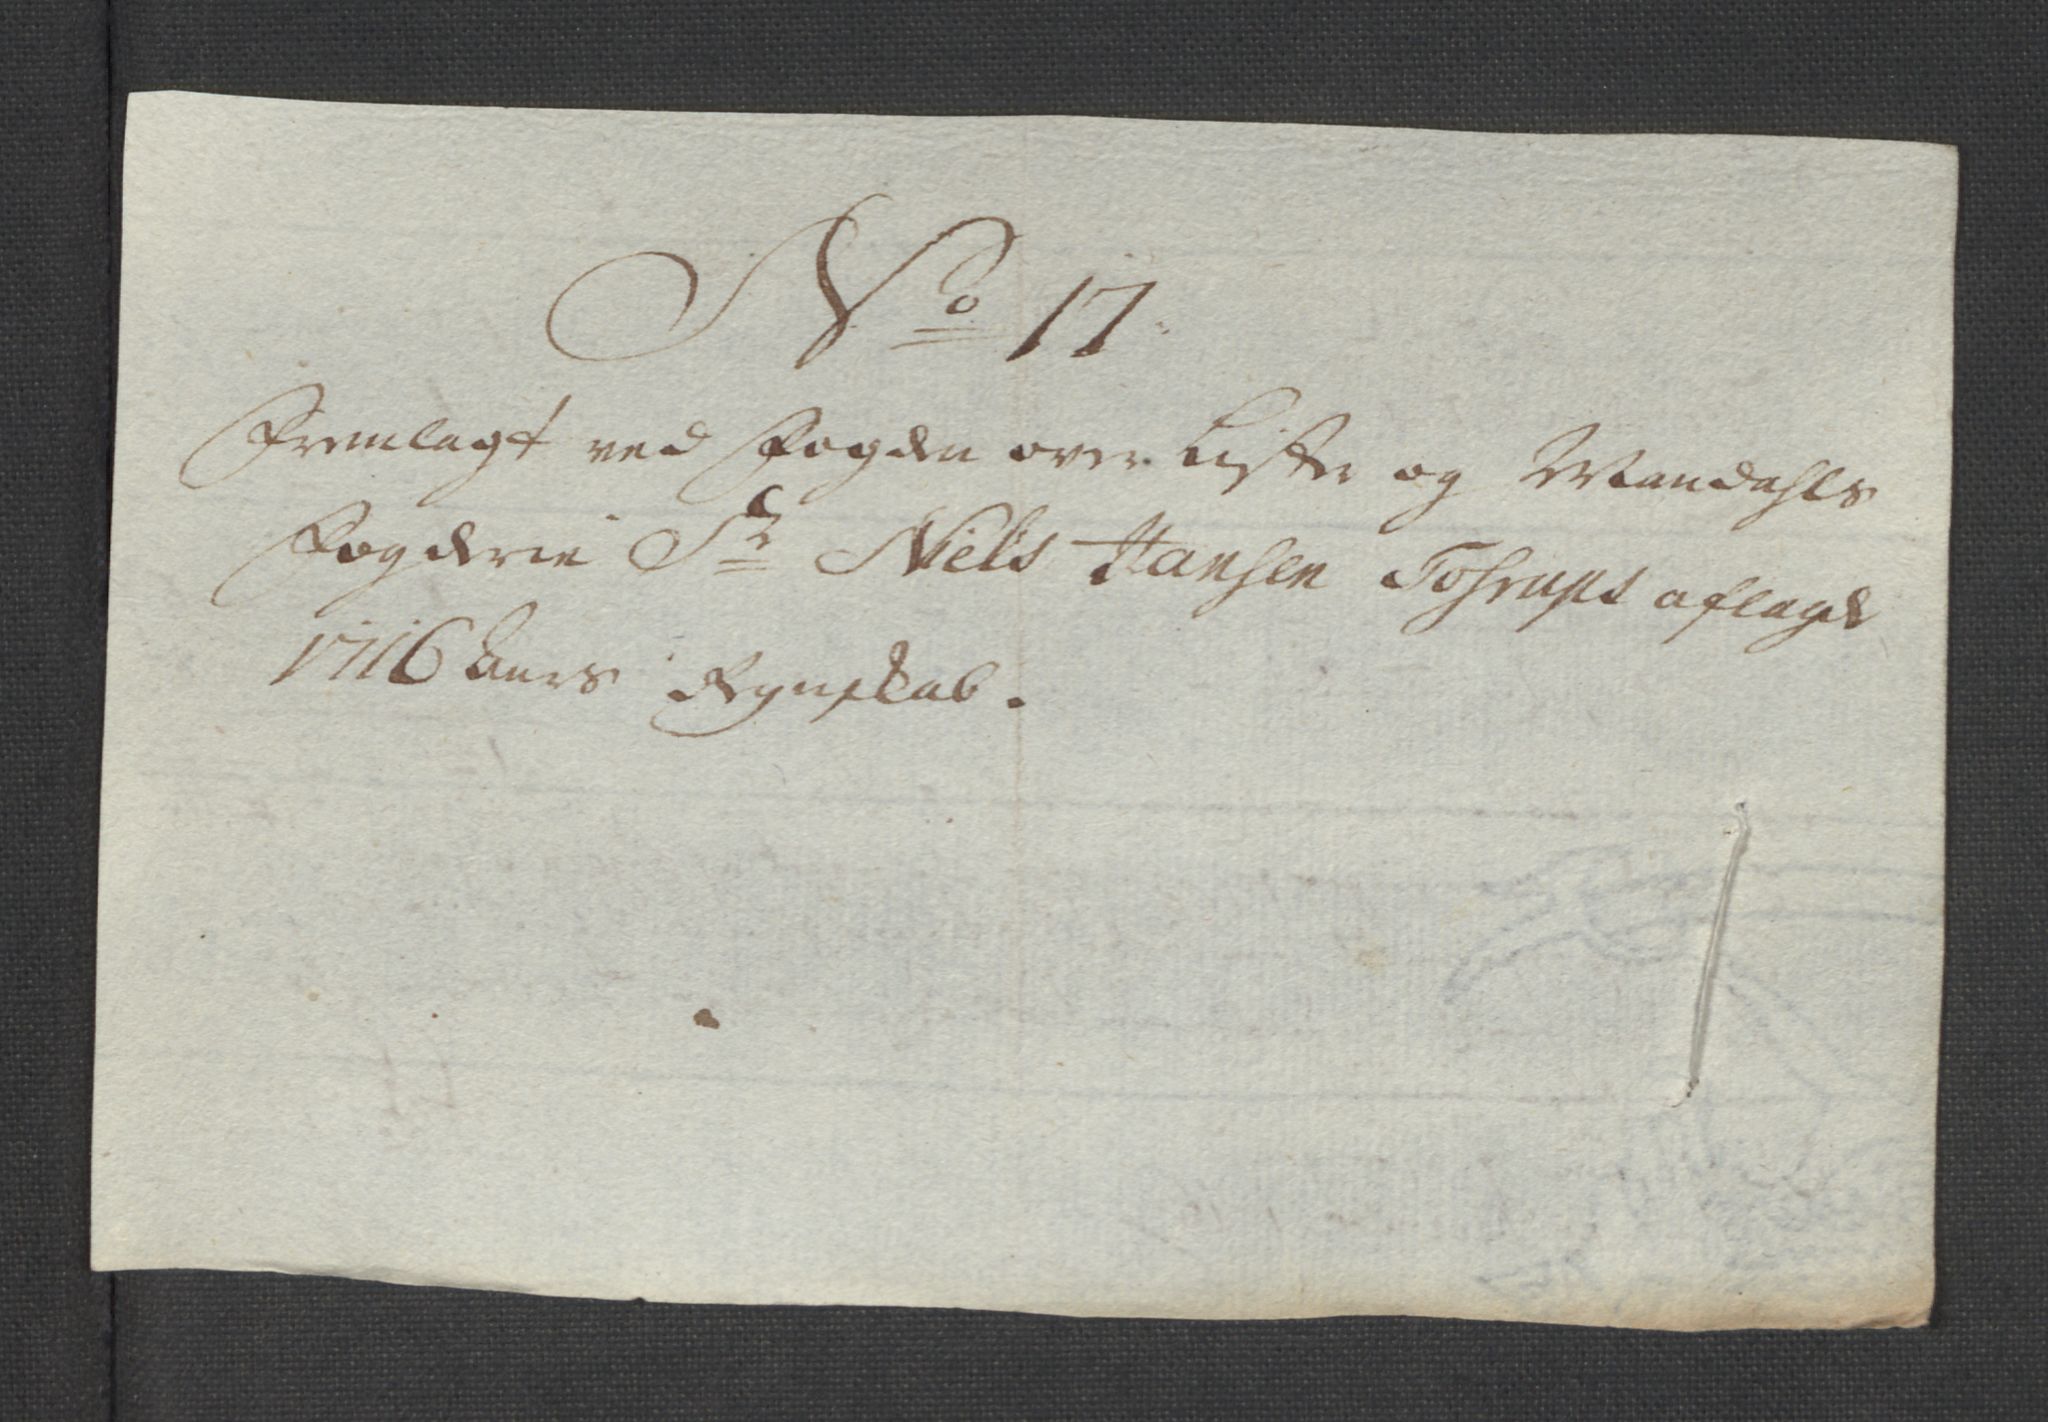 No 17
Fremlagt ved Fogden over Lister og Mandahls
Fogderie Sr Niels Hansen Tostrups aflagde
1716 Aars Regnskab.